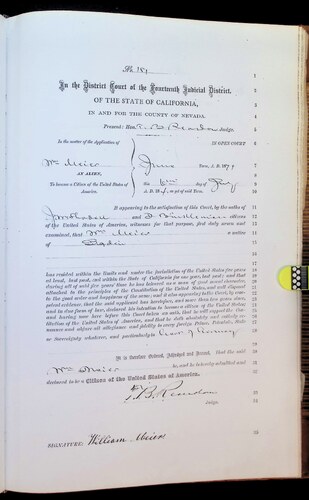 No 187
In the District Court of the Fourteenth Judicial District.
OF THE STATE OF CALIFORNIA,
IN AND FOR THE COUNTY OF NEVADA.
Present: Hon. T. B. Reardon Judge.
In the matter of the Application of
IN OPEN COURT
Wm Meier
AN ALIEN,
To become a Citizen of the United States of America.
Term, A. D. 187
This day of
A. D. 187
It appearing to the satisfaction of this Court, by the oaths of
and citizens
of the United States of America, witnesses for that purpose, first duly sworn and
examined, that Wm Meier a native
of Baden
has resided within the limits and under the jurisdiction of the United States five years
at least, last past, and within the State of California for one year, last past; and that
during all of said five years' time he has behaved as a man of good moral character,
attached to the principles of the Constitution of the United States, and well disposed
to the good order and happiness of the same; and it also appearing to the Court, by competent evidence, that the said applicant has heretofore, and more than two years since,
and in due form of law, declared his intention to become a citizen of the United States
and having now here before this Court taken an oath, that he will support the Constitution of the United States of America, and that he doth absolutely and entirely renounce and abjure all allegiance and fidelity to every foreign Prince, Potentate, State
or Sovereignty whatever, and particularly to
It is therefore Ordered, Adjudged and Decreed, That the said
Wm Meier be, and he hereby admitted and
declared to be a Citizen of the United States of America.
T. B. Reardon
Judge.
SIGNATURE: William Meier